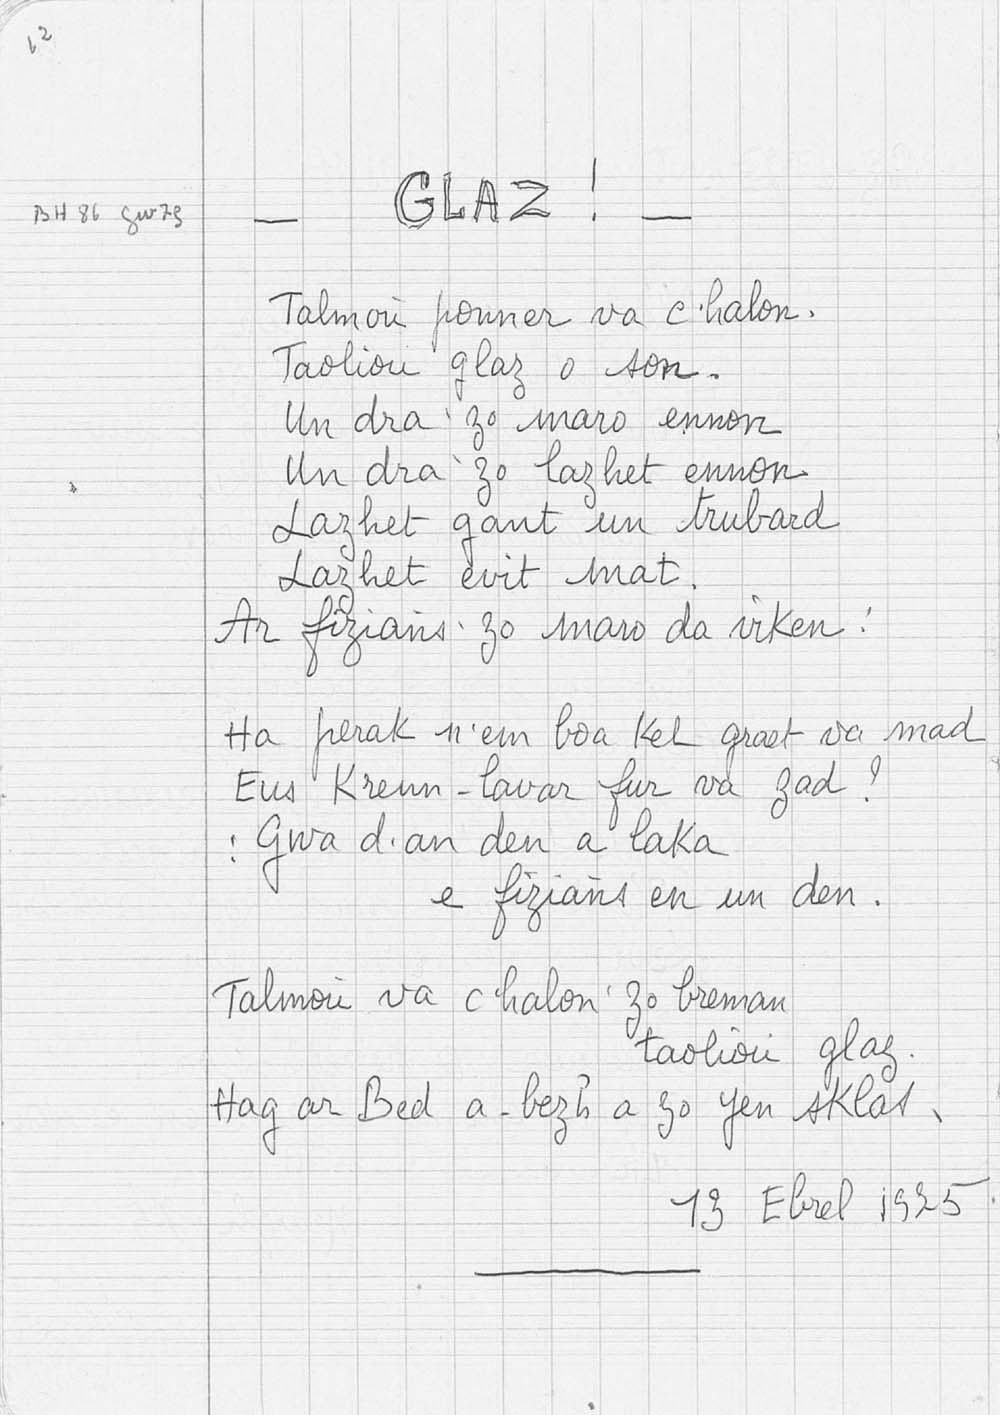 62
— GLAZ ! —
BH 86 gw 79
Talmoù pouner va c'halon.
Taolioù glaz o son.
Un dra 'zo maro ennon
Un dra 'zo lazhet ennon
Lazhet gant un trubard
Lazhet evit mat.
Ar fizians 'zo maro da viken !
Ha perak n'em boa ket graet va mad
Eus Krenn-lavar fur va zad ?
: Gwa d'an den a laka
e fizians en un den.
Talmoù va c'halon 'zo breman
taolioù glaz.
Hag ar Bed a-bezh a zo yen sklas.
13 Ebrel 1925.